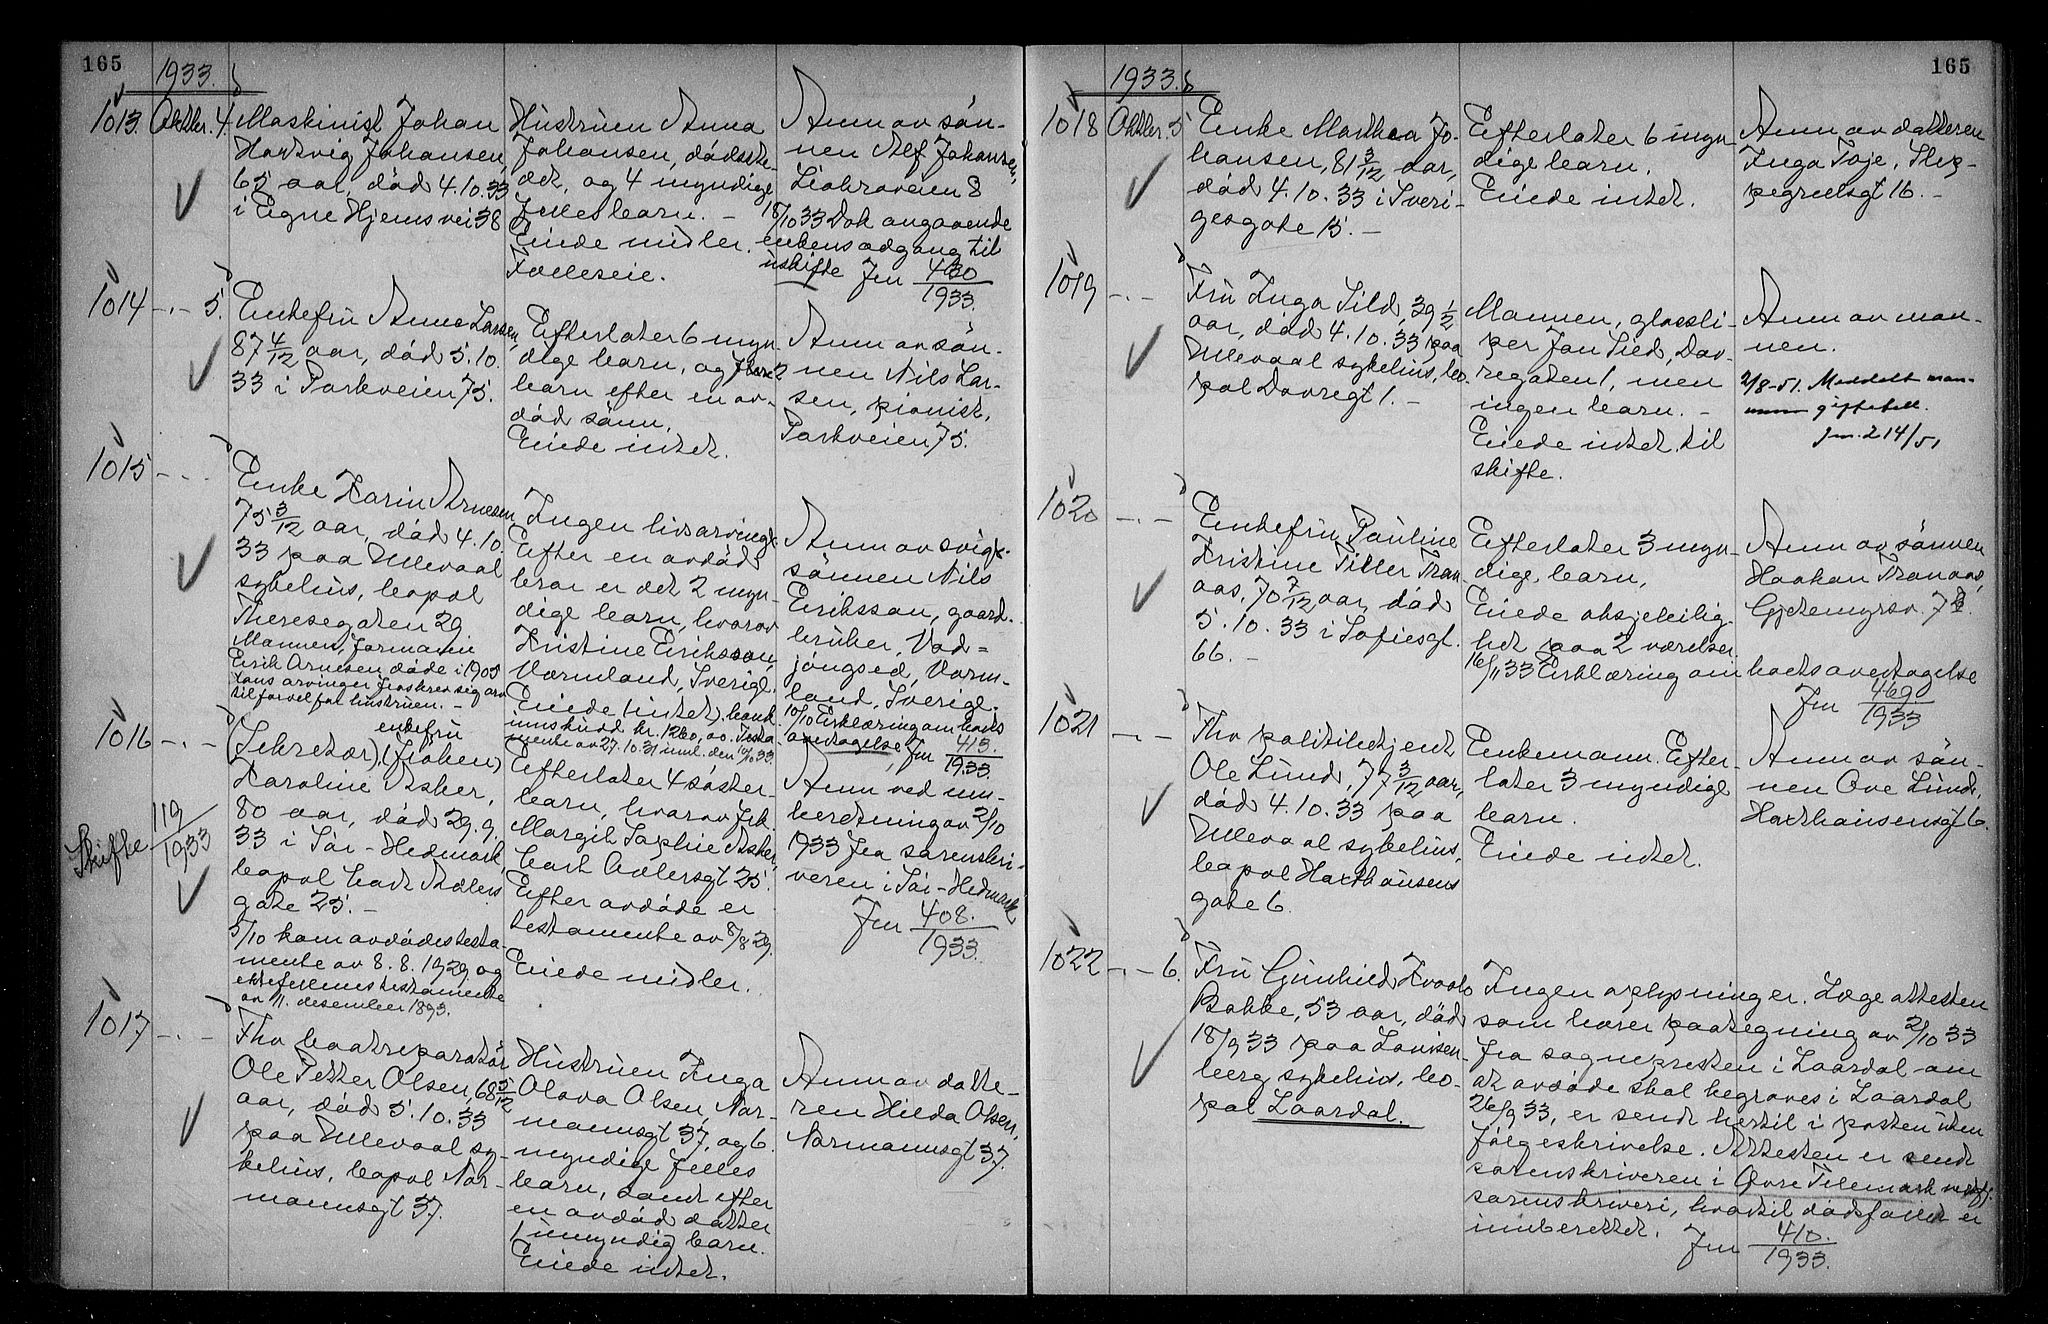 165
1933.
1013. Oktbr. 4. Maskinist Johan
Hartvig Johansen,
65 aar, død 4.10.33
i Egne Hjems vei 38
Hustruen Anna
Johansen, dødsste-
det, og 4 myndige
felles barn. -
Eiede midler.
Fælleseie.
Anm av søn-
nen Alf Johansen,
8
18/10 33 Dok angaaende
enkens adgang til
uskifte Jnr 430/1933.
1014 -.- 5. Enkefru Anna Larsen,
87 4/12 aar, død 5.10.
33 i Parkveien 75.
Efterlater 6 myn-
dige barn, og 2
barn efter en av-
død sønn.
Eiede intet.
Anm av søn-
nen Nils Lar-
sen, pianist,
Parkveien 75.
1015 -.- Enke Karin Arnesen
75 3/12 aar, død 4.10.
33 paa Ullevaal
sykehus, bopæl
Theresegaten 29
Mannen, formann
Erik Arnesen døde i 1905
hans arvinger fraskrev sig arv
til forvel for hustruen. -
Ingen livsarving.
Efter en avdød
bror er det 2 myn-
dige barn, hvorav
Kristine Eriksson,
Værmland, Sverige.
Eiede (intet).
innskudd kr. 1260,00. Testa-
mente av 27.10.31 innl. den 10/10 33.
Anm av svig.
sønnen Nils
Eriksson, gaard-
bruker,
Värm-
land, Sverige.
10/10 Erklæring om boets
overtagelse, Jnr 413./1933.
1016 -.- (Sekretær), enkefru (frøken)
Karoline Asker,
80 aar, død 29.9.
33 i Sør-Hedmark,
bopæl Carl Adlers
gate 25. -
Skifte 119/1933
5/10 kom avdødes testa-
mente av 8.8.1929 og
ektefellenes testamente
av 11. desember 1893.
Efterlater 4 søster-
barn, hvorav frk.
Margit Sophie Asker,
Carl Adlersgt 25.
Efter avdøde er
testamente av 8/8 29.
Eiede midler.
Anm ved inn-
beretning av 2/10
1933 fra sorenskri-
veren i Sør-Hedmark
Jnr 408./1933.
1017 -.- Fhv baatreparatør
Ole Petter Olsen, 68 5/12
aar, død 5.10.33
paa Ullevaal sy-
kehus, bopæl Nor-
mannsgt 37.
Hustruen Inga
Olava Olsen, Nor-
mannsgt 37, og 6
myndige felles
barn, samt efter
en avdød datter
1 umyndig barn.
Eiede intet.
Anm av datte-
ren Hilda Olsen,
Normannsgt 37.
165
1933.
1018 Oktbr. 5 Enke Marthea Jo-
hansen, 81 3/12 aar,
død 4.10.33 i Sveri-
gesgate 15. -
Efterlater 6 myn-
dige barn.
Eiede intet.
Anm av datteren
Inga Toje, Slep-
pegrellsgt 16. -
1019 -.- Fru Inga Sild, 39 1/2
aar, død 4.10.33 paa
Ullevaal sykehus, bo-
pæl Dovregt 1. -
Mannen, glassli-
per Jan Sild, Dov-
regaten 1, men
ingen barn. -
Eiede intet til
skifte.
Anm av man-
nen.
2/8-51. Meddelt man-
nen gifteatt.
Jnr. 214/51
1020 -.- Enkefru Pauline
Kristine Tiller Tran-
aas, 70 7/12 aar, død
5.10.33 i Sofiesgt.
66. -
Efterlater 3 myn-
dige barn,
Eiede aksjeleilig-
het paa 2 værelser.
16/11 33 Erklæring om boets overtagelse
Jnr 469/1933
Anm av sønnen
Haakon Tranaas,
1021 -.- Fhv politibetjent
Ole Lund, 77 3/12 aar,
død 4.10.33 paa
Ullevaal sykehus,
bopæl Haxthausens
gate 6.
Enkemann. Efter-
later 3 myndige
barn.
Eiede intet.
Anm av søn-
nen Ove Lund,
Haxthausensgt 6.
1022 -.- 6. Fru Gunhild
Bakke, 53 aar, død
18/9 33 paa Lovisen-
berg sykehus, bo-
pæl Laardal.
Ingen oplysninger. Lægeattesten
som bærer paategning av 2/10 33
fra sognepresten i Laardal om
at avdøde skal begraves i Laardal
26/9 33, er sendt hertil i posten uten
følgeskrivelse. Attesten er sendt
sorenskriveren i Øvre Telemark
sorenskriveri, hvortil dødsfallet er
innberettet.
Jnr 410./1933.